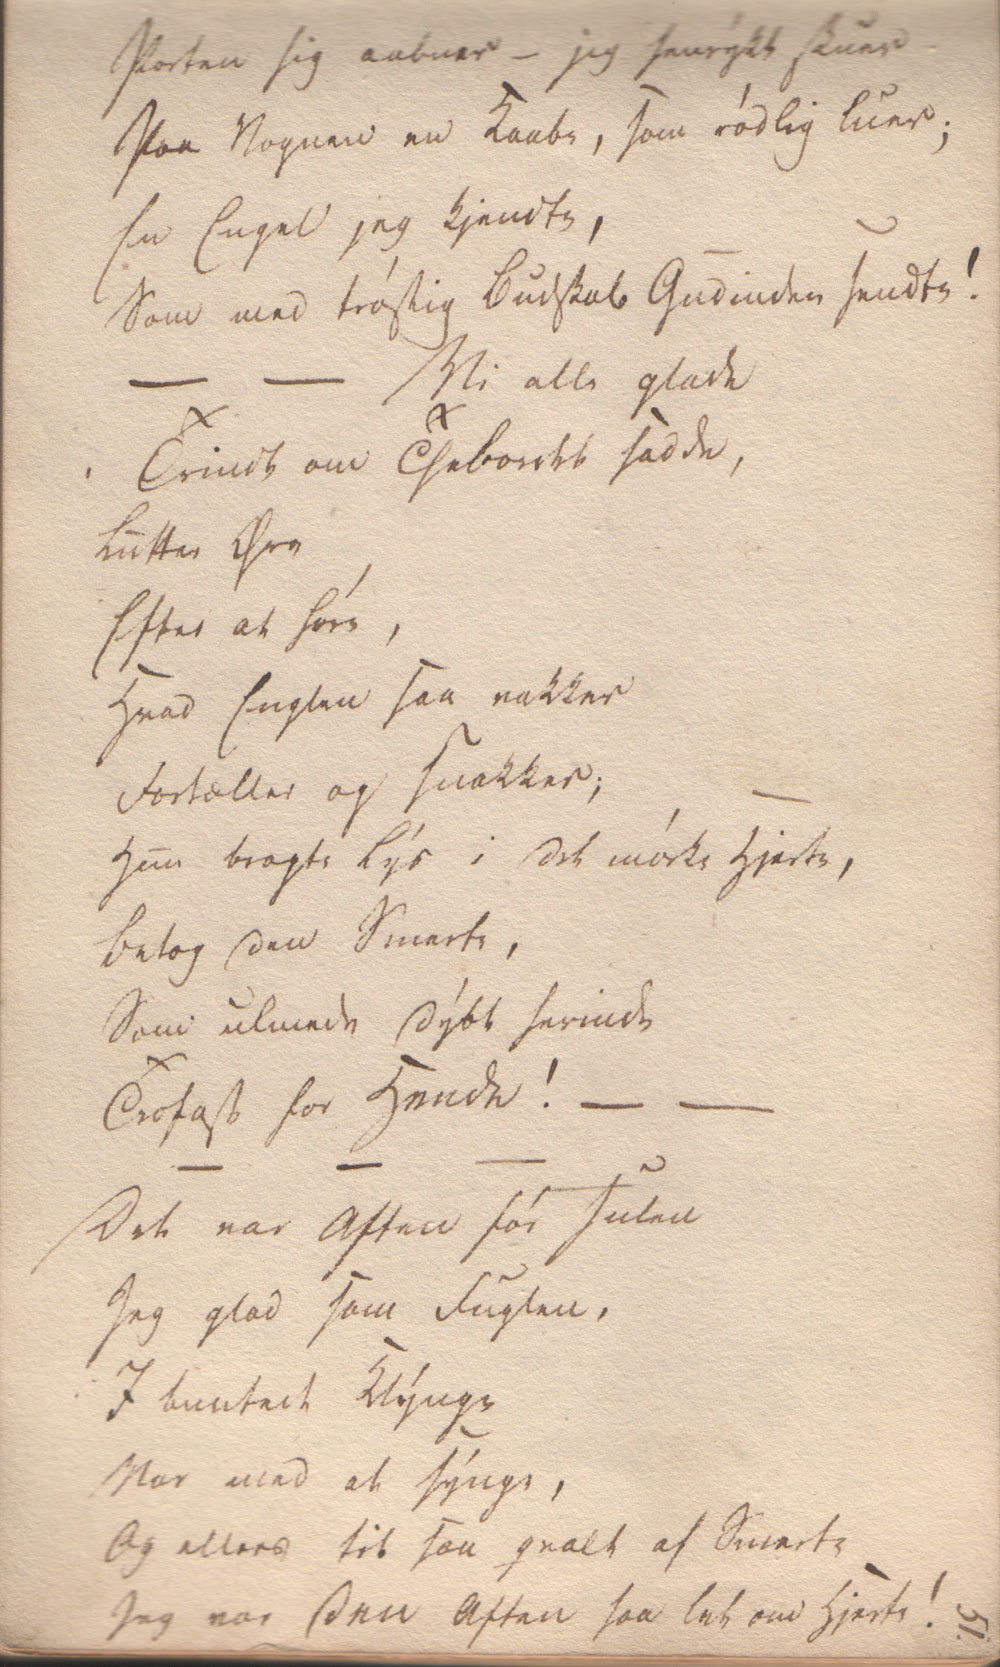 Porten sig aabner – jeg henrykt skuer
Paa Vognen en Kaabe, som rødlig luer;
En Engel jeg kjendte,
Som med trøstig Budskab Gudinden sendte!
— — Vi alle glade
Trindt om Theebordet sadde,
Lutter Øre
Efter at høre,
Hvad Englen saa vakker
Fortæller og snakker;
Hun bragte Lys i det mørke Hjerte,
Betog den Smerte,
Som ulmede dybt herinde
Trofast for Hende! — —
— — —
Det var Aften før Julen
Jeg glad som Fuglen,
I buntect Klynge
Var med at synge,
Og ellers tit saa qvalt af Smerte
Jeg var den Aften saa let om Hjerte!
51.